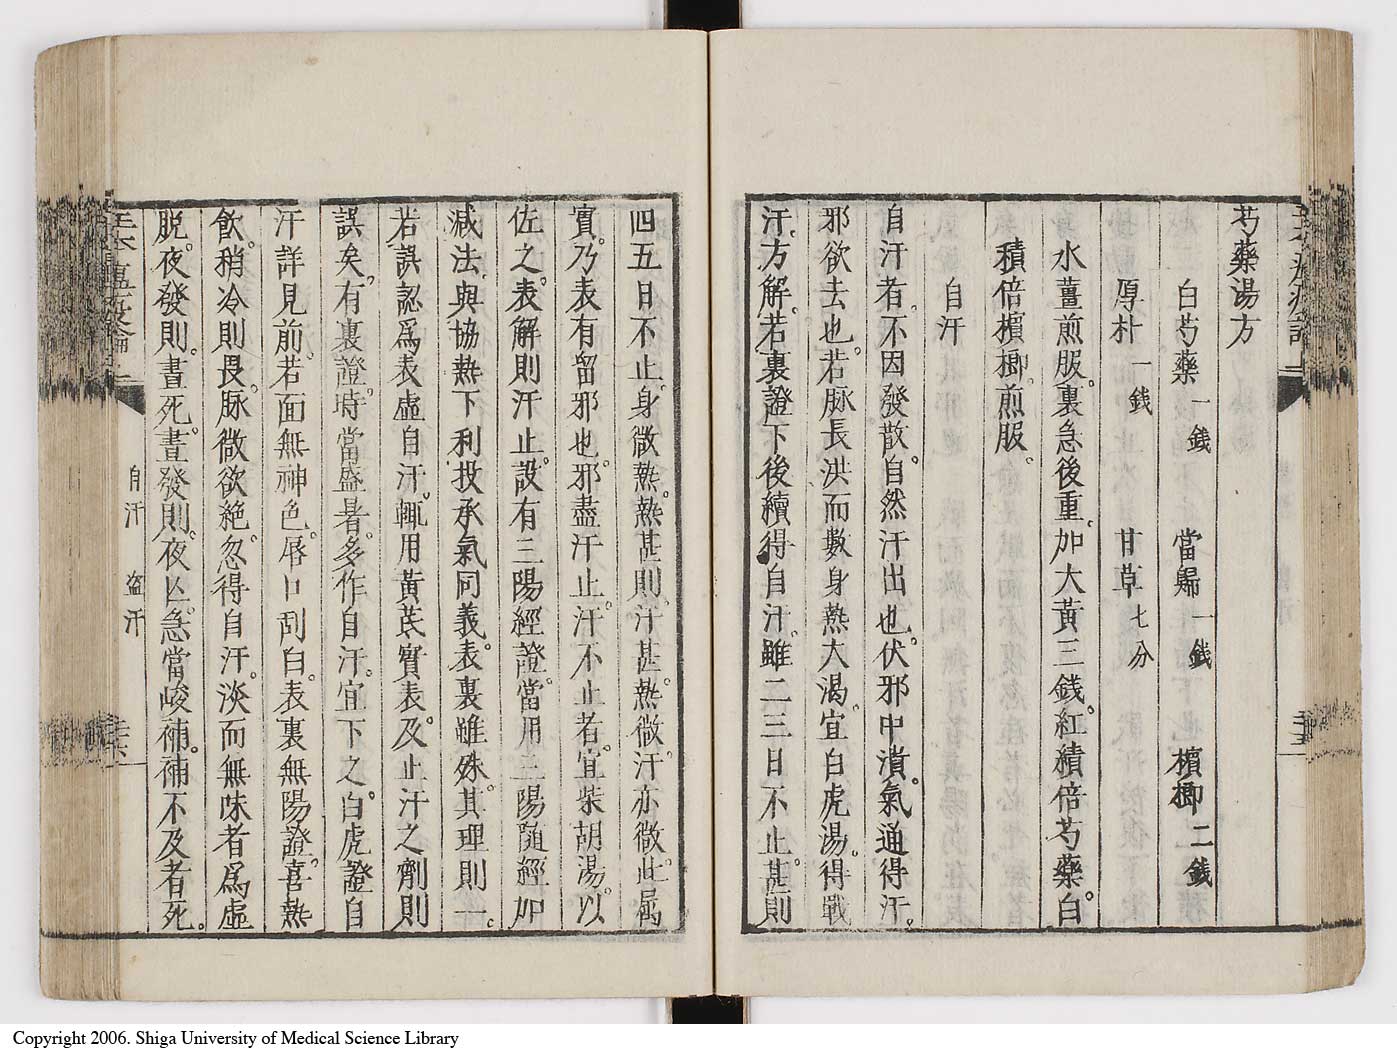 芍藥湯方
白芍藥 一錢 當歸 一錢 檳榔 二錢
厚朴 一錢 甘草 七分
水薑煎服。裏急後重。加大黃三錢。紅積倍芍藥。白
積倍檳榔。煎服。
自汗
自汗者。不因發散。自然汗出也。伏邪中潰。氣通得汗。
邪欲去也。若脉長洪而數。身熱大渴。宜白虎湯。得戰
汗。方解。若裏證下後。續得自汗。雖二三日不止。甚則
四五日不止。身微熱。熱甚則汗甚。熱微汗亦微。此屬
實。乃表有留邪也。邪盡汗止。汗不止者。宜柴胡湯。以
佐之。表解則汗止。設有三陽經證。當用三陽隨經加
減法。與協熱下利投承氣同義。表裏雖殊。其理則一。
若誤認爲表虛自汗。輒用黃芪實表。及止汗之劑則
誤矣。有裏證。時當盛暑。多作自汗。宜下之。白虎證自
汗詳見前。若面無神色。唇口刮白。表裏無陽證。喜熱
飲。稍冷則畏。脉微欲絶。忽得自汗。淡而無味者爲虛
脱。夜發則晝死。晝發則夜亡。急當峻補。補不及者死。
自汗 盗汗